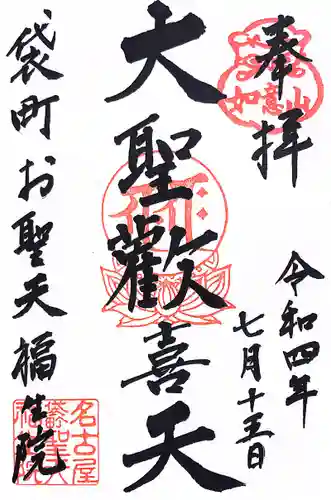 奉拝
如意山
令和四年
七月十五日
大聖歡喜天
袋町お聖天福生院
名古屋